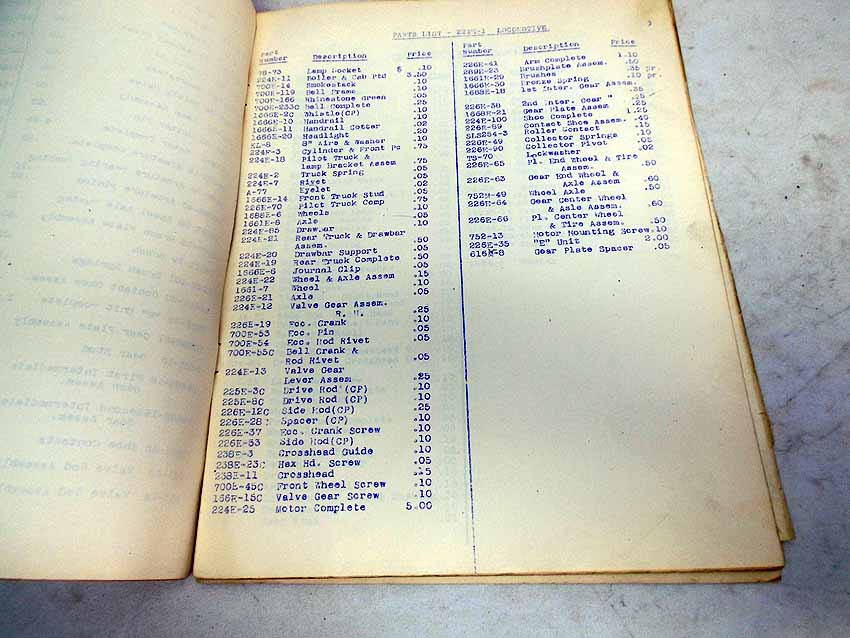 PARTS LIST - LOCOMOTIVE
Part Number Description Price
78-73 Lamp Socket $ .10
224E-11 Boiler & Cab Ptd 3.50
700E-14 Smokestack .10
700E-119 Bell Frame .10
700E-166 Rhinestone Green .05
700E-233C Bell Complete .25
1666E-2C Whistle(CP) .10
1666E-10 Handrail .10
1666E-11 Handrail Cotter .02
1666E-20 Headlight .20
KL-8 8" Wire & Washer .10
224E-3 Cylinder & Front Pc .75
224E-18 Pilot Truck &
Lamp Bracket Assem .75
224E-2 Truck Spring .05
224E-7 Rivet .05
A-77 Eyelet .02
1666E-14 Front Truck Stud .05
226E-70 Pilot Truck Comp .75
1688E-6 Wheels .10
1661E-8 Axle .05
224E-85 Drawbar .10
224E-21 Rear Truck & Drawbar
Assem. .50
224E-20 Drawbar Support .05
224E-19 Rear Truck Complete .50
1666E-6 Journal Clip .05
224E-22 Wheel & Axle Assem .15
1661-7 Wheel .10
226E-21 Axle .05
224E-12 Valve Gear Assem.
R. H. .25
226E-19 Ecc. Crank .10
700E-53 Ecc. Pin .05
700E-54 Ecc. Rod Rivet .05
700E-55C Bell Crank &
Rod Rivet .05
224E-13 Valve Gear
Lever Assem .25
225E-3C Drive Rod (CP) .10
225E-8C Drive Rod (CP) .10
226E-12C Side Rod(CP) .25
226E-28C Spacer (CP) .10
226E-37 Ecc. Crank Screw .10
226E-83 Side Rod(CP) .10
238E-3 Crosshead Guide .10
238E-23C Hex Hd. Screw .05
238E-11 Crosshead
700E-45C Front Wheel Screw .10
166E-15C Valve Gear Screw .10
224E-25 Motor Complete 5.00
Part Number Description Price
226E-41 Arm Complete 1.10
289E-23 Brushplate Assem. .50
1661E-29 Brushes .35 pr.
1666E-30 Bronze Spring .10 pr.
1668E-18 1st Inter. Gear Assem.
.35
226E-38 2nd Inter. Gear "
1668E-21 Gear Plate Assem .25
224E-100 Shoe Complete 1.25
226E-89 Contact Shoe Assem. .40
SLS284-3 Roller Contact .15
226E-49 Collector Springs .10
226E-90 Collector Pivot .05
TS-70 Lockwasher .02
226E-65 Pl. End Wheel & Tire
Assem. .50
226E-63 Gear End Wheel &
Axle Assem .60
752M-49 Wheel Axle .50
226E-64 Gear Center Wheel
& Axle Assem. .60
226E-66 Pl. Center Wheel
& Tire Assem. .50
752-13 Motor Mounting Screw .10
226E-35 "E" Unit 2.00
616E-8 Gear Plate Spacer .05